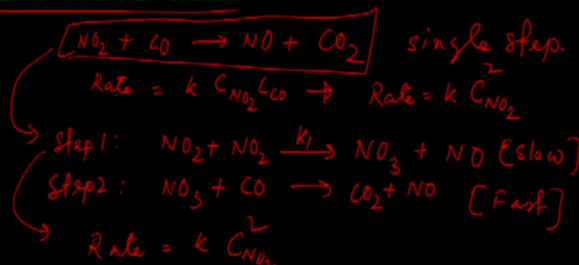 NO₂ + CO → NO + CO₂ single step.
Rate = k C_NO₂ C_CO → Rate = k C²_NO₂
Step1: NO₂ + NO₂ —k₁→ NO₃ + NO [Slow]
Step2: NO₃ + CO → CO₂ + NO [Fast]
Rate = k C²_NO₂